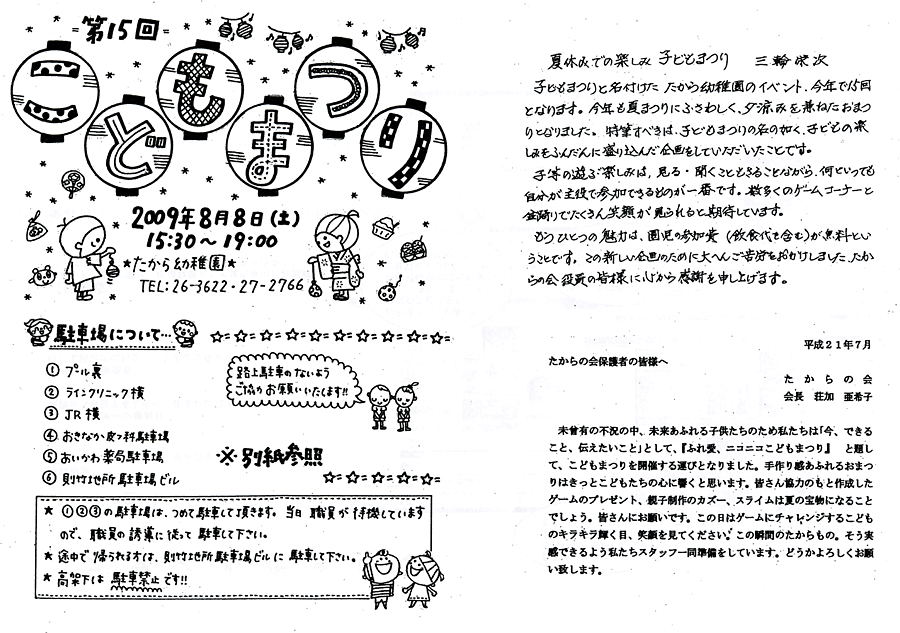 第15回
こどもまつり
2009年8月8日(土)
15:30～19:00
★たから幼稚園★
TEL:26-3622・27-2766
駐車場について…
① プール裏
② ラインクリニック横
③ JR横
④ おきなか皮フ科駐車場
⑤ おいかわ薬局駐車場
⑥ 則竹地所駐車場ビル
路上駐車のないよう
ご協力お願いいたします!!
※別紙参照
★ ①②③の駐車場は、つめて駐車して頂きます。当日 職員が待機しています
ので、職員の誘導に従って 駐車して下さい。
★ 途中で帰られる方は、則竹地所駐車場ビルに駐車して下さい。
★ 高架下は 駐車禁止です!!
夏休みでの楽しみ 子どもまつり 三輪栄次
子どもまつりと名付けた たから幼稚園のイベント、今年で15回
となります。今年も夏まつりにふさわしく、夕涼みを兼ねたおまつ
りとなりました。特筆すべきは、子どもまつりの名の如く、子どもの楽
しみをふんだんに盛り込んだ企画をしていただいたことです。
子供の遊ぶ楽しみは、見る・聞くこともさることながら、何といっても
自分が主役で参加できるものが一番です。数多くのゲームコーナーと
盆踊りでたくさん笑顔が見られると期待しています。
もうひとつの魅力は、園児の参加費(飲食代も含む)が無料とい
うことです。この新しい企画のために大へんご苦労をおかけしました、たか
らの会役員の皆様に心から感謝を申し上げます。
平成21年7月
たからの会保護者の皆様へ
たからの会
会長 荘加 亜希子
未曾有の不況の中、未来あふれる子供たちのため私たちは「今、できる
こと、伝えたいこと」として、『ふれ愛、ニコニコこどもまつり』 と題し
て、こどもまつりを開催する運びとなりました。手作り感あふれるおまつ
りはきっとこどもたちの心に響くと思います。皆さん協力のもと作成した
ゲームのプレゼント、親子制作のカズー、スライムは夏の宝物になること
でしょう。皆さんにお願いです。この日はゲームにチャレンジするこども
のキラキラ輝く目、笑顔を見てください。この瞬間のたからもの。そう実
感できるよう私たちスタッフ一同準備をしています。どうかよろしくお願
い致します。